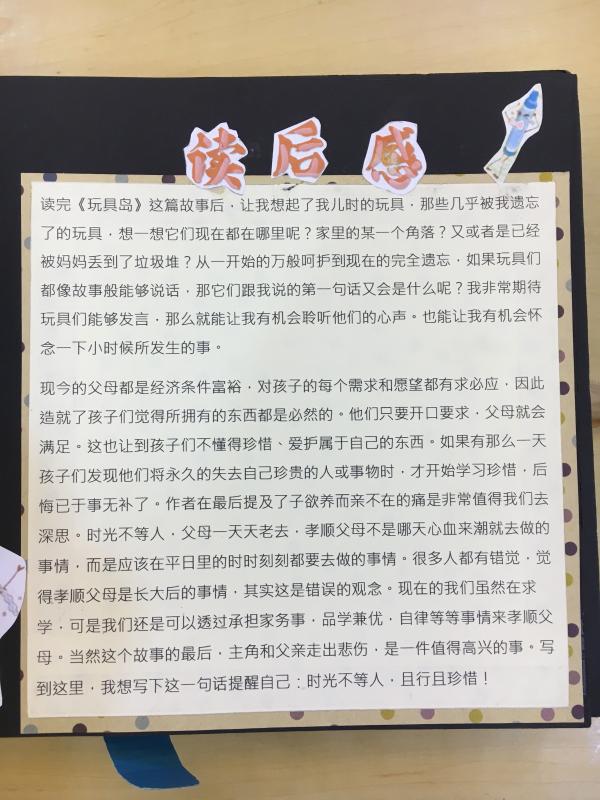 读后感
读完《玩具岛》这篇故事后，让我想起了我儿时的玩具，那些几乎被我遗忘
了的玩具，想一想它们现在都在哪里呢？家里的某一个角落？又或者是已经
被妈妈丢到了垃圾堆？从一开始的万般呵护到现在的完全遗忘，如果玩具们
都像故事般能够说话，那它们跟我说的第一句话又会是什么呢？我非常期待
玩具们能够发言，那么就能让我有机会聆听他们的心声。也能让我有机会怀
念一下小时候所发生的事。
现今的父母都是经济条件富裕，对孩子的每个需求和愿望都有求必应，因此
造就了孩子们觉得所拥有的东西都是必然的。他们只要开口要求，父母就会
满足。这也让到孩子们不懂得珍惜、爱护属于自己的东西。如果有那么一天
孩子们发现他们将永久的失去自己珍贵的人或事物时，才开始学习珍惜，后
悔已于事无补了。作者在最后提及了子欲养而亲不在的痛是非常值得我们去
深思。时光不等人，父母一天天老去，孝顺父母不是哪天心血来潮就去做的
事情，而是应该在平日里的时时刻刻都要去做的事情。很多人都有错觉，觉
得孝顺父母是长大后的事情，其实这是错误的观念。现在的我们虽然在求
学，可是我们还是可以透过承担家务事，品学兼优，自律等等事情来孝顺父
母。当然这个故事的最后，主角和父亲走出悲伤，是一件值得高兴的事。写
到这里，我想写下这一句话提醒自己：时光不等人，且行且珍惜！